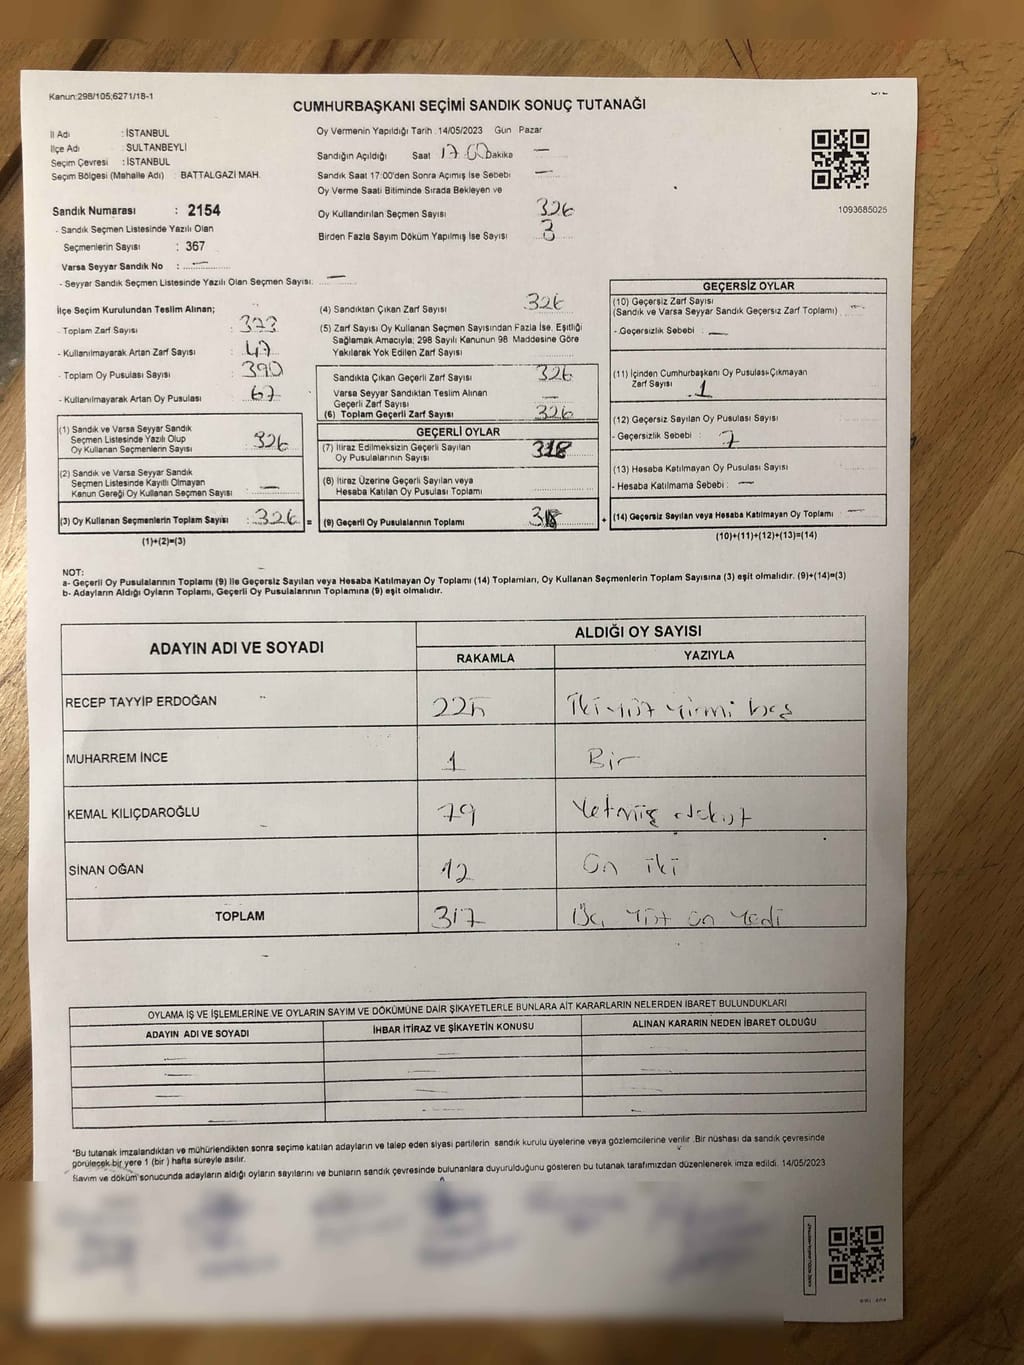 Kanun:298/105;6271/18-1
CUMHURBAŞKANI SEÇİMİ SANDIK SONUÇ TUTANAĞI
İl Adı : İSTANBUL
İlçe Adı : SULTANBEYLİ
Seçim Çevresi : İSTANBUL
Seçim Bölgesi (Mahalle Adı) : BATTALGAZİ MAH.
Sandık Numarası : 2154
- Sandık Seçmen Listesinde Yazılı Olan
Seçmenlerin Sayısı : 367
Varsa Seyyar Sandık No : —
- Seyyar Sandık Seçmen Listesinde Yazılı Olan Seçmen Sayısı: —
Oy Vermenin Yapıldığı Tarih : 14/05/2023 Gün Pazar
Sandığın Açıldığı Saat 17:00 Dakika —
Sandık Saat 17:00'den Sonra Açımış İse Sebebi —
Oy Verme Saati Bitiminde Sırada Bekleyen ve
Oy Kullandırılan Seçmen Sayısı 326
Birden Fazla Sayım Döküm Yapılmış İse Sayısı 3
1093685025
İlçe Seçim Kurulundan Teslim Alınan;
- Toplam Zarf Sayısı : 373
- Kullanılmayarak Artan Zarf Sayısı : 47
- Toplam Oy Pusulası Sayısı : 390
- Kullanılmayarak Artan Oy Pusulası : 67
(1) Sandık ve Varsa Seyyar Sandık
Seçmen Listesinde Yazılı Olup
Oy Kullanan Seçmenlerin Sayısı 326
(2) Sandık ve Varsa Seyyar Sandık
Seçmen Listesinde Kayıtlı Olmayan
Kanun Gereği Oy Kullanan Seçmen Sayısı —
(3) Oy Kullanan Seçmenlerin Toplam Sayısı : 326 =
(1)+(2)=(3)
(4) Sandıktan Çıkan Zarf Sayısı 326
(5) Zarf Sayısı Oy Kullanan Seçmen Sayısından Fazla İse, Eşitliği
Sağlamak Amacıyla; 298 Sayılı Kanunun 98 Maddesine Göre
Yakılarak Yok Edilen Zarf Sayısı
Sandıkta Çıkan Geçerli Zarf Sayısı 326
Varsa Seyyar Sandıktan Teslim Alınan
Geçerli Zarf Sayısı —
(6) Toplam Geçerli Zarf Sayısı 326
GEÇERLİ OYLAR
(7) İtiraz Edilmeksizin Geçerli Sayılan
Oy Pusulalarının Sayısı 318
(8) İtiraz Üzerine Geçerli Sayılan veya
Hesaba Katılan Oy Pusulası Toplamı
(9) Geçerli Oy Pusulalarının Toplamı +
GEÇERSİZ OYLAR
(10) Geçersiz Zarf Sayısı
(Sandık ve Varsa Seyyar Sandık Geçersiz Zarf Toplamı) —
- Geçersizlik Sebebi : —
(11) İçinden Cumhurbaşkanı Oy Pusulası Çıkmayan
Zarf Sayısı 1
(12) Geçersiz Sayılan Oy Pusulası Sayısı
- Geçersizlik Sebebi : 7
(13) Hesaba Katılmayan Oy Pusulası Sayısı
- Hesaba Katılmama Sebebi : —
(14) Geçersiz Sayılan veya Hesaba Katılmayan Oy Toplamı —
(10)+(11)+(12)+(13)=(14)
NOT:
a- Geçerli Oy Pusulalarının Toplamı (9) ile Geçersiz Sayılan veya Hesaba Katılmayan Oy Toplamı (14) Toplamları, Oy Kullanan Seçmenlerin Toplam Sayısına (3) eşit olmalıdır. (9)+(14)=(3)
b- Adayların Aldığı Oyların Toplamı, Geçerli Oy Pusulalarının Toplamına (9) eşit olmalıdır.
ADAYIN ADI VE SOYADI ALDIĞI OY SAYISI
RAKAMLA YAZIYLA
RECEP TAYYİP ERDOĞAN 225 İki yüz yirmi beş
MUHARREM İNCE 1 Bir
KEMAL KILIÇDAROĞLU 79 Yetmiş dokuz
SİNAN OĞAN 12 On iki
TOPLAM 317 Üç yüz on yedi
OYLAMA İŞ VE İŞLEMLERİNE VE OYLARIN SAYIM VE DÖKÜMÜNE DAİR ŞİKAYETLERLE BUNLARA AİT KARARLARIN NELERDEN İBARET BULUNDUKLARI
ADAYIN ADI VE SOYADI İHBAR İTİRAZ VE ŞİKAYETİN KONUSU ALINAN KARARIN NEDEN İBARET OLDUĞU
*Bu tutanak imzalandıktan ve mühürlendikten sonra seçime katılan adayların ve talep eden siyasi partilerin sandık kurulu üyelerine veya gözlemcilerine verilir .Bir nüshası da sandık çevresinde
görülecek bir yere 1 (bir ) hafta süreyle asılır.
Sayım ve döküm sonucunda adayların aldığı oyların sayılarını ve bunların sandık çevresinde bulunanlara duyurulduğunu gösteren bu tutanak tarafımızdan düzenlenerek imza edildi. 14/05/2023